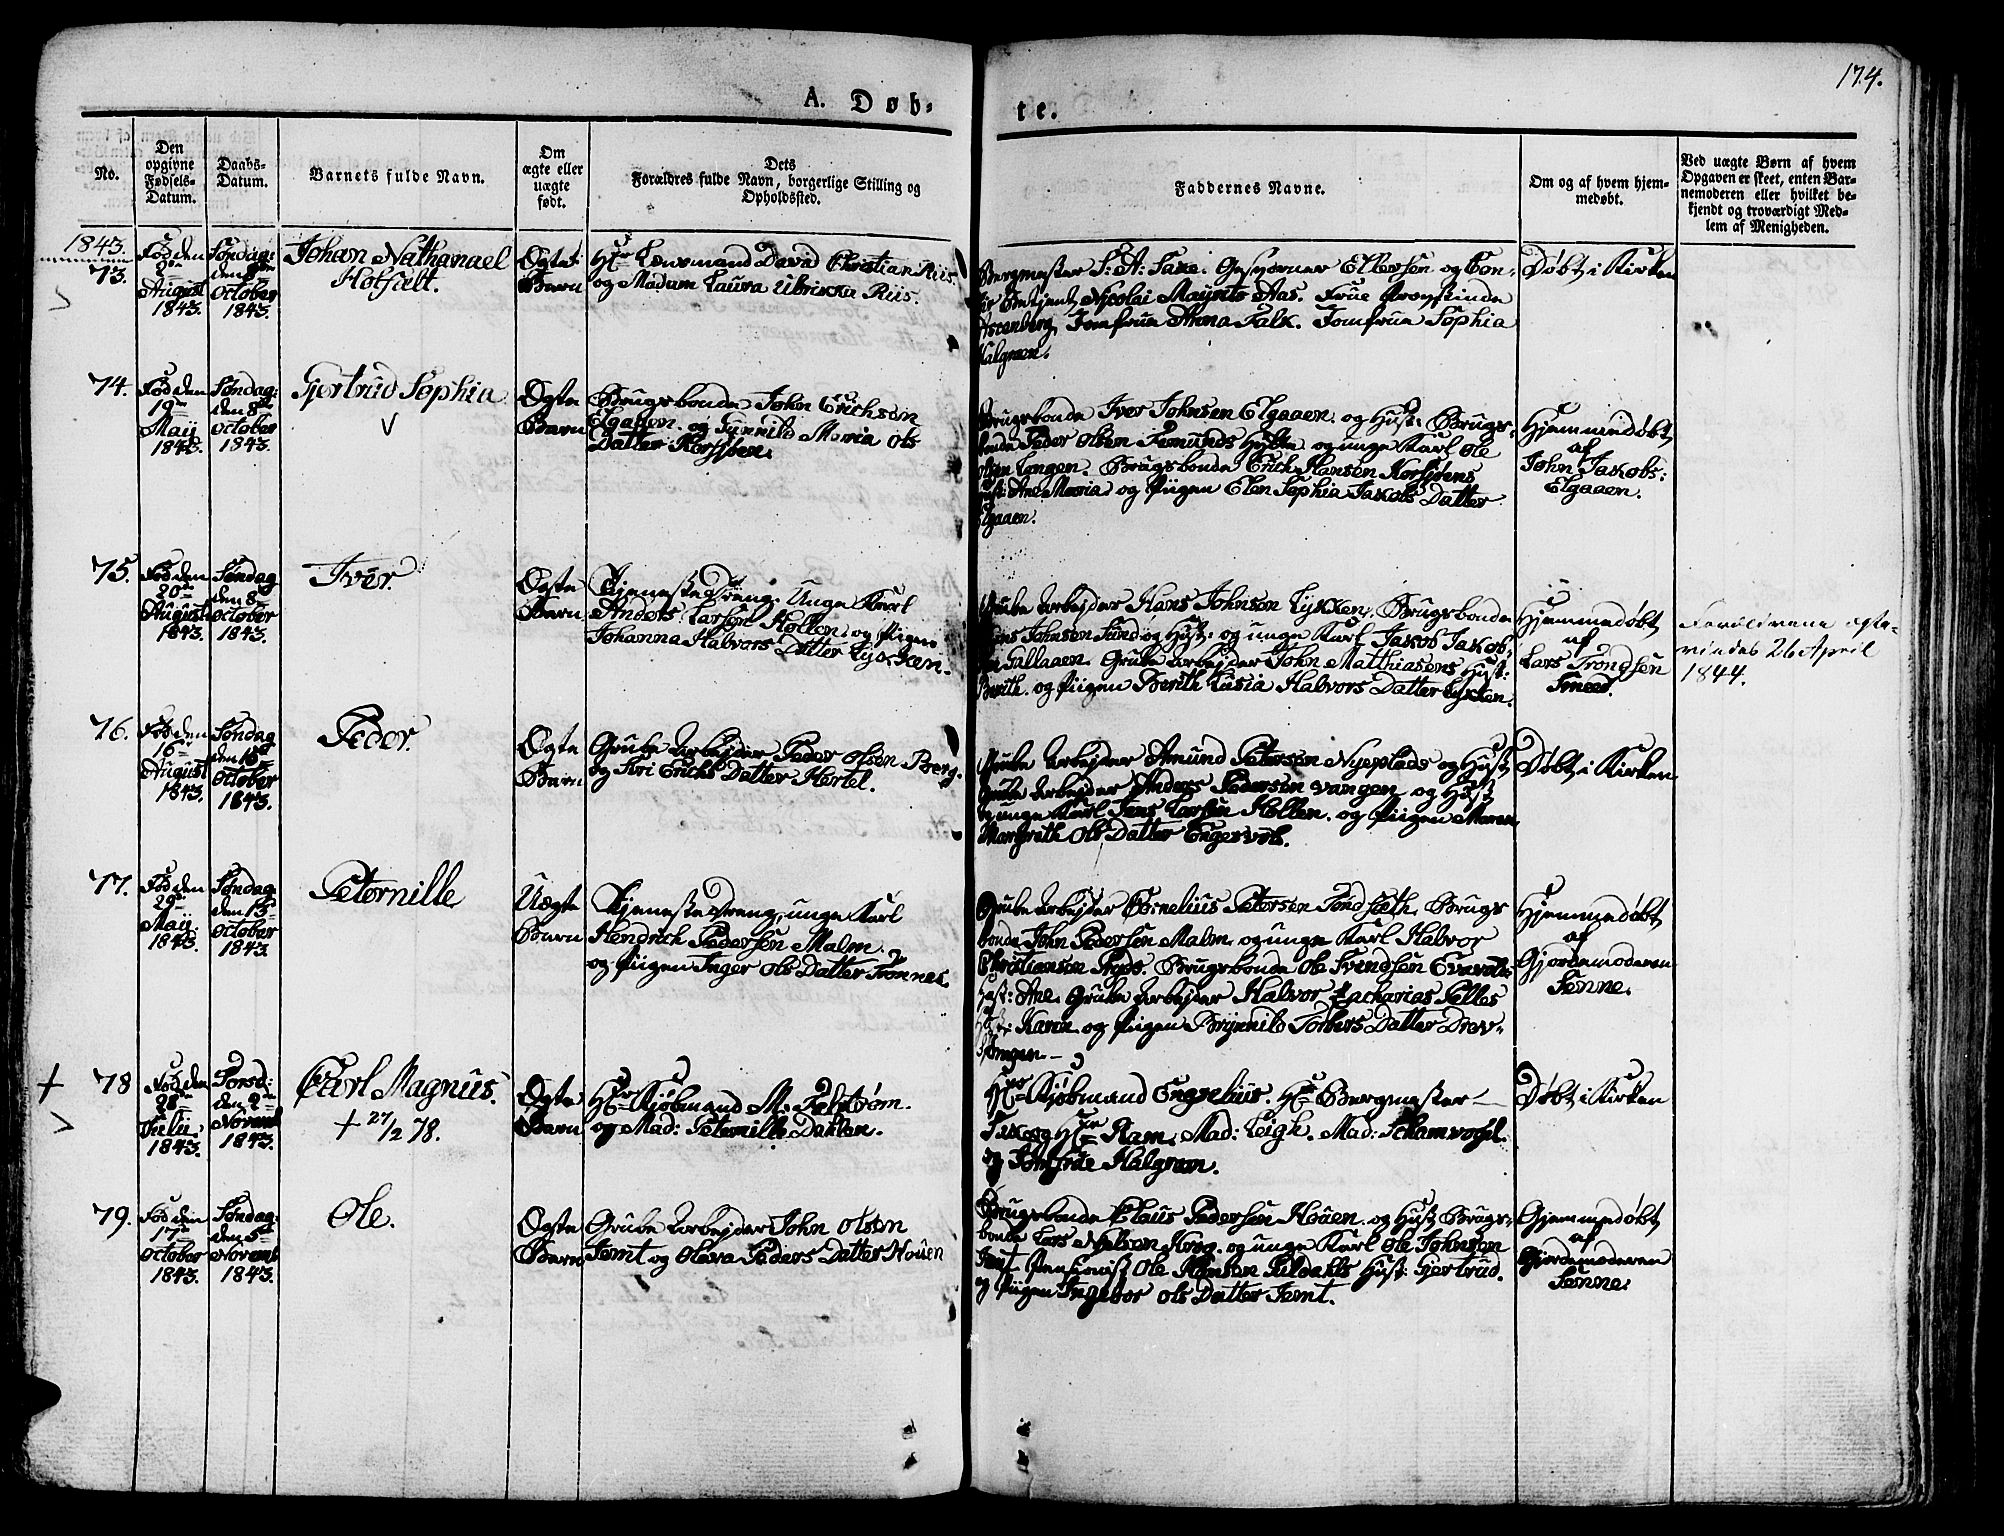 174.
A. Døb-
te.
No.
Den
opgivne
Fødsels-
Datum.
Daabs-
Datum.
Barnets fulde Navn.
Om
ægte eller
uægte
født.
Dets
Forældres fulde Navn, borgerlige Stilling og
Opholdssted.
Faddernes Navne.
Om og af hvem hjem-
medøbt.
Ved uægte Børn af hvem
Opgaven er skeet, enten Bar-
nemoderen eller hvilket be-
kjendt og troværdigt Med-
lem af Menigheden.
1843.
73.
Fød den
2den
August
1843.
Søndag:
den 8de
October
1843.
Johan Nathanael
Holfalt.
Ægte
Barn
Hr Lensmand David Christian Riis.
og Madam Laura Ulrikka Riis.
Bergmester S: A: Saxe. Gasverner Ellersen og Con-
Betjent Nicolai Mauritz Aas. Frue
Jomfrue Anna Falk. Jomfrue Sophia
Halgreen.
Døbt i Kirken
74.
Fød den
19de
Maij
1843.
Søndag:
den 8de
October
1843.
Gjertrud Sophia
Ægte
Barn
Brugsbonde John Erichsen
Elgaaen. og Gunnild Maria Ols
Datter Korssøen.
Brugsbonde Iver Johnsen Elgaaen og Hust: Brugs-
bonde Peder Olsen Femunds Hytte og unge Karl Ole
Olsen Langen. Brugsbonde Erich Hansen Korsjøens
Hust: Ane Maria og Piigen Elen Sophia Jakobs Datter
Elgaaen.
Hjemmedøbt
af
John Jakobs:
Elgaaen.
75.
Fød den
20de
August
1843.
Søndag
den 8de
October
1843.
Iver.
Ægte
Barn
Tjenestedreng. Unge Karl
Anders Larsen Holten. og Piigen
Johanna Halvors Datter Lyskken.
Grube Arbejder Hans Johnsen Lykken. Brugsbonde
Jens Johnsen Sund og Hust: og unge Karl Jakob Jakob-
sen Gallaaen. Grube Arbejder John Matthiasens Hust:
Berith. og Piigen Berith Lusia Halvors Datter Lykken.
Hjemmedøbt
af
Lars Trondsen
Smeed.
Forældrene ægte-
viedes 26 April
1844.
76.
Fød den
16de
August
1843.
Søndag
den 15de
October
1843.
Peder.
Ægte
Barn
Grube Arbejder Peder Olsen Berg.
og Siri Erichs Datter Hertel.
Grube Arbejder Amund Petersen Nyeplads og Hust
Grube Arbejder Anders Pedersen Vangen og Hust
og unge Karl Jens Larsen Holten. og Piigen Maren
Margreth Ols Datter Engevold.
Døbt i Kirken
77.
Fød den
29de
Maij.
1843.
Søndag
den 15de
October
1843
Peternille
Uægte
Barn
Tjenestedreng, unge Karl
Hendrich Pedersen Malm.
og Piigen Inger Ols Datter Tromnes.
Grube Arbejder Cornelius Petersen Tønsæth. Brugs
bonde John Pedersen Malm. og unge Karl Halvor
Christiansen Brods. Brugsbonde Ole Svendsen Evavolds
Hust: Ane. Grube Arbejder Halvor Zacharias Pelles
Hust: Karen og Piigen Brynnild Torbers Datter Drev-
Hjemmedøbt
af
Gjordemoderen
Senne.
+ 78
Fød den
28de
Julii.
1843.
Torsd:
den 2den
Novemb
1843.
Carl Magnus.
+ 27/2 78.
Ægte
Barn
Hr Kjøbmand M. Falstrøm.
og Mad: Peternille Dahlen.
Hr Kjøbmand Engzelius. Hr Bergmester
Saxe og Hr Ram. Mad: Leigh. Mad: Schamvogel.
og Jomfrue Halgreen.
Døbt i Kirken
79.
Fød den
17de
October
1843.
Søndag:
den 5te
Novemb
1843.
Ole.
Ægte
Barn
Grube Arbejder John Olsen
Jemt og Oleva Peders Datter Houen
Brugsbonde Claus Pedersen Houen. og Hust Brugs-
bonde Lars Nielsen Krog. og unge Karl Ole Johnsen
Jemt. Ole Hansen Fieldahls Hust: Gjertrud.
og Piigen Ingebor Ols Datter Jemt.
Hjemmedøbt
af
Gjordemoderen
Senne.